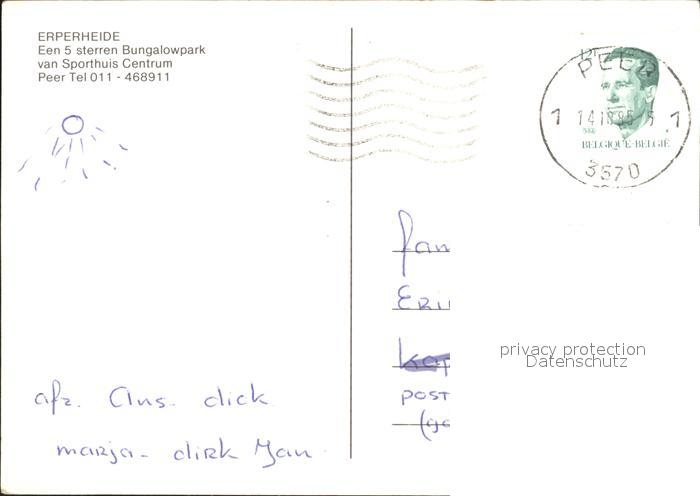 ERPERHEIDE
Een 5 sterren Bungalowpark
van Sporthuis Centrum
Peer Tel 011 - 468911
PEER
1 1
BELGIQUE-BELGIË
3570
fam
ERI
POST
privacy protection
Datenschutz
afz. Ans. dick
marja- dirk Jan